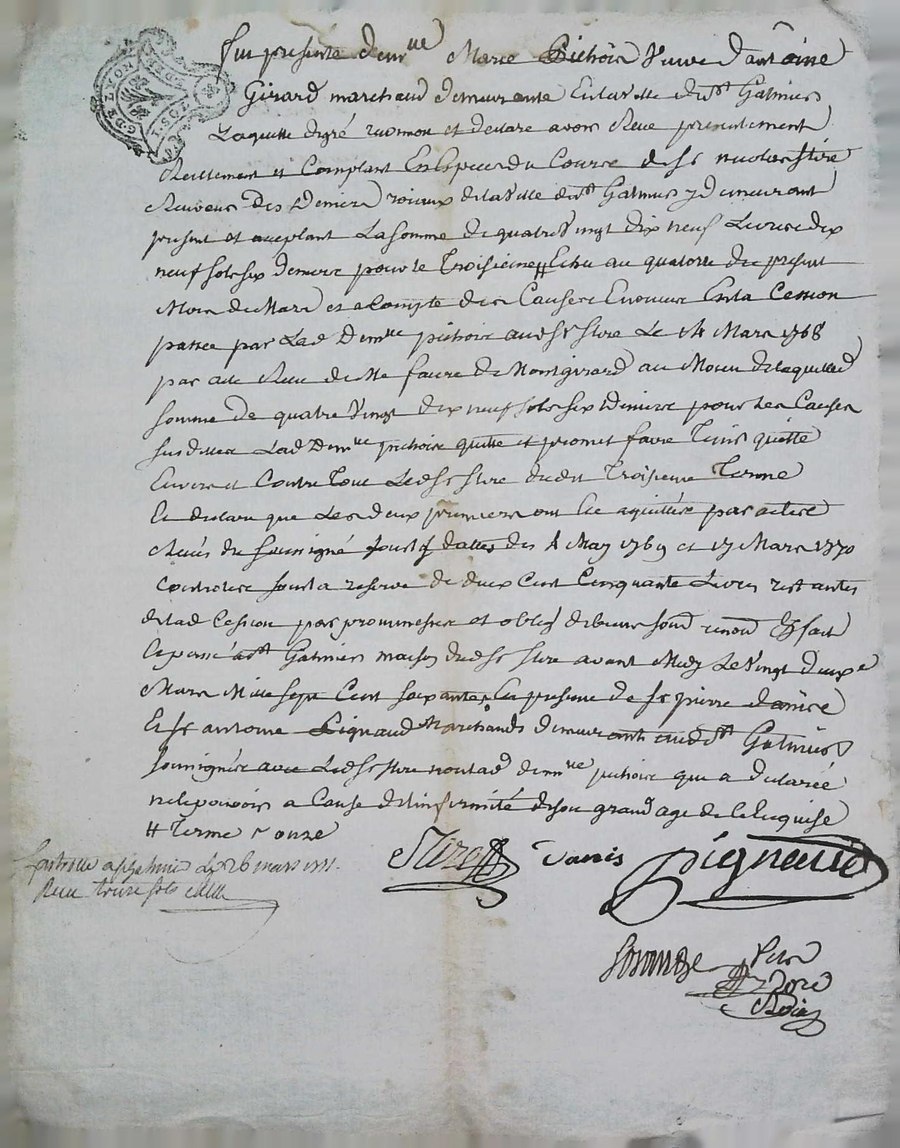 GDE LYON
2 SOLS
Fut presente demlle Marie Pichoir Veuve d'antoine
Girard marchand demeurante En la ville de st Galmier
Laquelle de gré a reconnu et declare avoir Reçu presentement
Reellement et Comptant En Especes du Cours de sr Stire
Receveur des Deniers roiaux de la ville de st Galmier y demeurant
present et acceptant La somme de quatre Vingt dix neuf Livres dix
neuf sols six deniers pour le Troisieme # Echu au quatorze du present
Mois de Mars et a Compte des Causes Enoncées En la Cession
passée par Lad Demlle pichoir aud sr Stire Le 14 Mars 1768
par acte Recu de Me faure de Montgirard au Moien de laquelle d
somme de quatre Vingt dix neuf sols six deniers pour Les Causes
susdittes Lad Demlle pichoir quitte et promet faire Tenir quitte
Envers et Contre Tous Led sr Stire dudit Troisieme Terme
Et declare que Les deux premiers ont été aquittés par actes
Recus du soussigné sous dattes des 4 May 1769 et 17 Mars 1770
Controlées sous la reserve de deux Cent Cinquante Livres restantes
de lad Cession par promesses et oblig fait
et passé a st Galmier maison dud sr Stire avant Midy Le Vingt deuxe
Mars Mille sept Cent soixante En presence de sr pierre
Et sr antoine Pignaud Marchands demeurants aud st Galmier
soussignés avec Led sr Stire non lad demlle pichoir qui a declarée
ne le pouvoir a Cause de l'infirmité de son grand age de ce Requise
# Terme onze
Controllé a st Galmier le 26 mars 1771.
Reçu treize sols
Stire
Pignaud